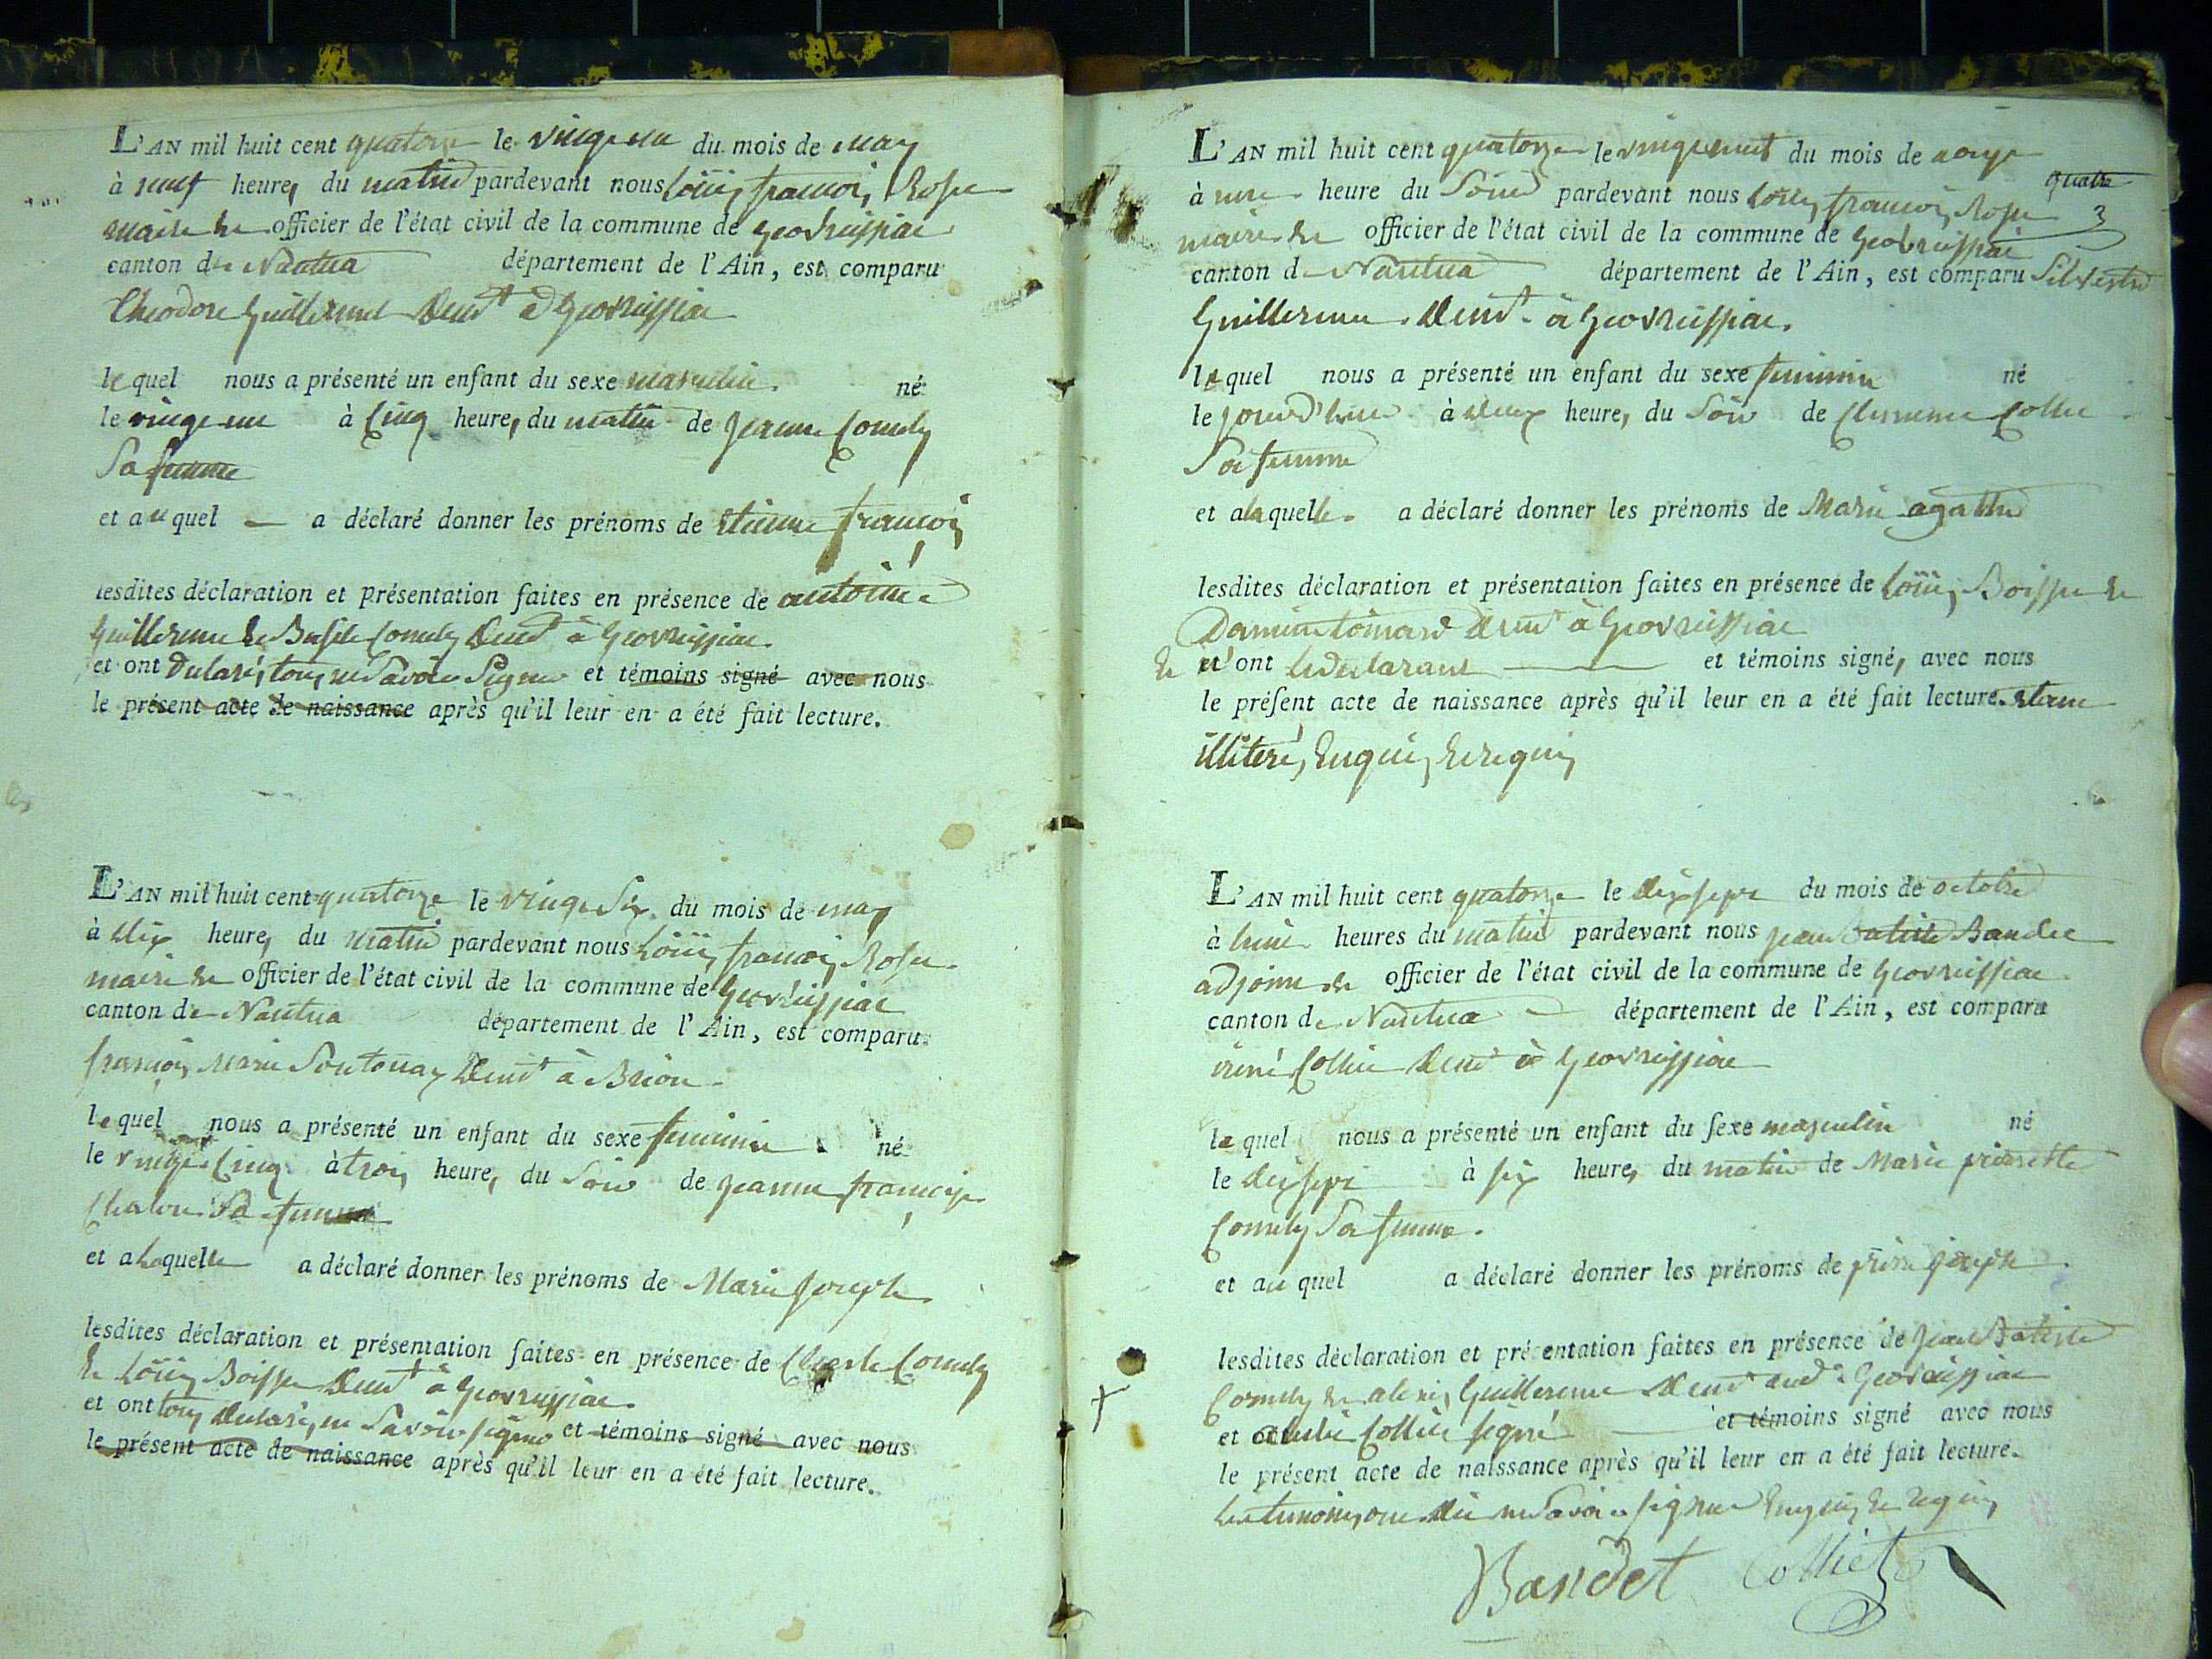 L'AN mil huit cent quatorze le vingt un du mois de may
à neuf heures du matin pardevant nous Loüis françois Rosse
maire et officier de l'état civil de la commune de Geovreissiac
canton de Nantua département de l'Ain, est comparu
Theodore Guillermet demt à Geovreissiac
lequel nous a présenté un enfant du sexe masculin né
le vingt un à Cinq heures du matin de Jeanne Comely
Sa femme
et auquel a déclaré donner les prénoms de Etienne françois
lesdites déclaration et présentation faites en présence de antoine
Guillerme et Comely demt à Geovreissiac
et ont déclarés tous ne Savoir Signer et témoins signé avec nous
le présent acte de naissance après qu'il leur en a été fait lecture.
L'AN mil huit cent quatorze le vingt Six du mois de may
à dix heures du matin pardevant nous Loüis françois Rosse
maire et officier de l'état civil de la commune de Geovreissiac
canton de Nantua département de l'Ain, est comparu
françois Marie Soutonax demt à Brion
lequel nous a présenté un enfant du sexe feminin né
le vingt Cinq à trois heures du Soir de Jeanne françoise
Sa femme
et a laquelle a déclaré donner les prénoms de Marie Joseph
lesdites déclaration et présentation faites en présence de Charle Comely
et Loüis Boisse demt à Geovreissiac
et ont tous declarés ne Savoir signer et témoins signé avec nous
le présent acte de naissance après qu'il leur en a été fait lecture.
quatre
3
L'AN mil huit cent quatorze le du mois de
à une heure du Soir pardevant nous Loüis françois Rosse
maire et officier de l'état civil de la commune de Geovreissiac
canton de Nantua département de l'Ain, est comparu Silvestre
Guillerme demt à Geovreissiac.
lequel nous a présenté un enfant du sexe feminin né
le jourd'hui à heures du Soir de
Sa femme
et a laquelle a déclaré donner les prénoms de Marie agathe
lesdites déclaration et présentation faites en présence de Loüis Boisse et
demt à Geovreissiac
et n'ont le declarant et témoins signé, avec nous
le présent acte de naissance après qu'il leur en a été fait lecture. etant
illiterés Enquis et requis
L'AN mil huit cent quatorze le dix sept du mois de octobre
à huit heures du matin pardevant nous jean Batiste Bandet
adjoint et officier de l'état civil de la commune de Geovreissiac
canton de Nantua département de l'Ain, est comparu
iréné Colliet demt à Geovreissiac
lequel nous a présenté un enfant du sexe masculin né
le dix sept à six heures du matin de Marie pierrette
Comely Sa femme.
et auquel a déclaré donner les prénoms de joseph
lesdites déclaration et présentation faites en présence de Jean Batiste
Comely et alexis Guillerme demt aud. Geovreissiac
et Colliet signé et témoins signé avec nous
le présent acte de naissance après qu'il leur en a été fait lecture.
les temoins ont dit ne Savoir signer Enquis et requis
Bandet Colliet